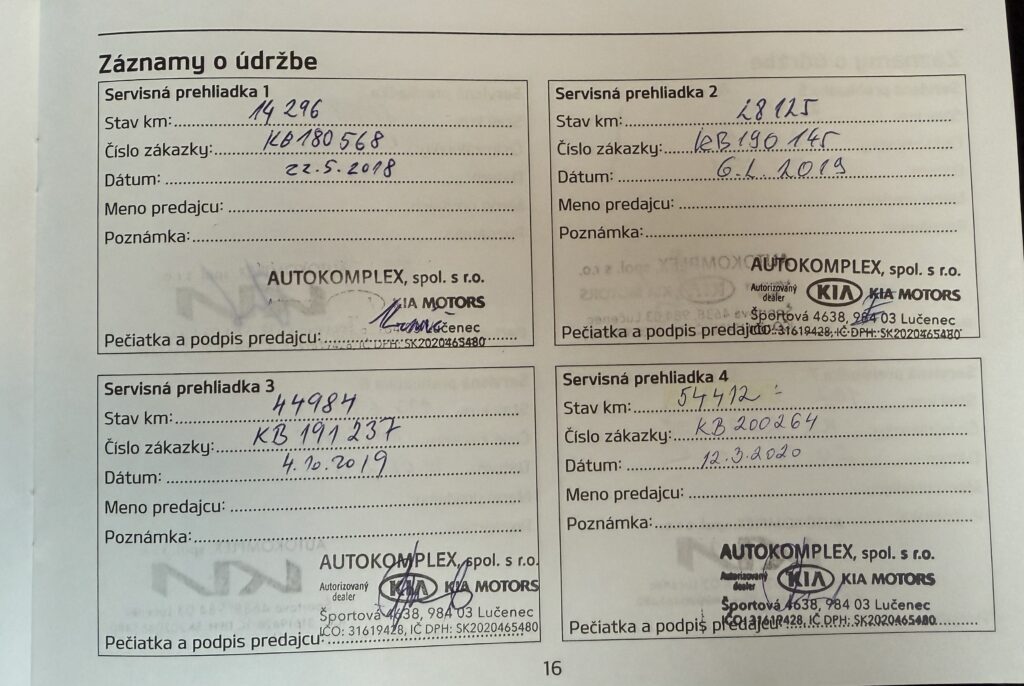 Záznamy o údržbe
Servisná prehliadka 1
Stav km: 14 296
Číslo zákazky: KB180568
Dátum: 22.5.2018
Meno predajcu:
Poznámka:
AUTOKOMPLEX, spol. s r.o.
KIA MOTORS
Lučenec
Pečiatka a podpis predajcu:
IČ DPH: SK2020465480
Servisná prehliadka 2
Stav km: 28125
Číslo zákazky: KB190145
Dátum: 6.2.2019
Meno predajcu:
Poznámka:
AUTOKOMPLEX, spol. s r.o.
Autorizovaný dealer KIA KIA MOTORS
Športová 4638, 984 03 Lučenec
Pečiatka a podpis predajcu:
IČO: 31619428, IČ DPH: SK2020465480
Servisná prehliadka 3
Stav km: 44984
Číslo zákazky: KB 191237
Dátum: 4.10.2019
Meno predajcu:
Poznámka:
AUTOKOMPLEX, spol. s r.o.
Autorizovaný dealer KIA KIA MOTORS
Športová 4638, 984 03 Lučenec
IČO: 31619428, IČ DPH: SK2020465480
Pečiatka a podpis predajcu:
Servisná prehliadka 4
Stav km: 54412
Číslo zákazky: KB 200264
Dátum: 12.3.2020
Meno predajcu:
Poznámka:
AUTOKOMPLEX, spol. s r.o.
Autorizovaný dealer KIA KIA MOTORS
Športová 4638, 984 03 Lučenec
IČO: 31619428, IČ DPH: SK2020465480
Pečiatka a podpis predajcu:
16